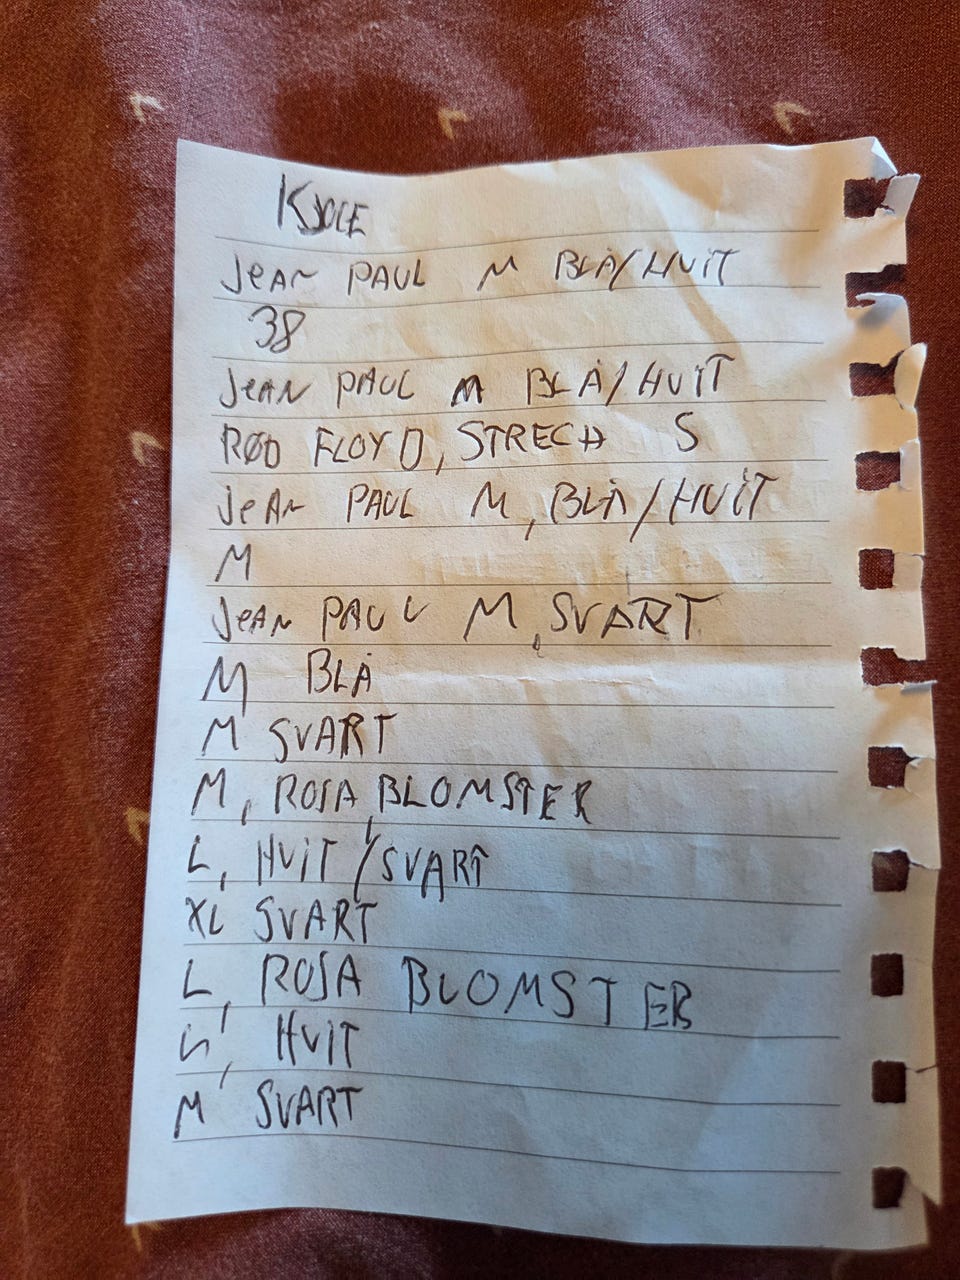 KJOLE
JeAN PAUL M BLÅ/HVIT
38
JeAN PAUL M BLÅ/HVIT
RØD FLOYD, STRECH S
JeAN PAUL M, BLÅ/HVIT
M
JeAN PAUL M, SVART
M BLÅ
M SVART
M, ROSA BLOMSTER
L, HVIT/SVART
XL SVART
L, ROSA BLOMSTER
HVIT
M SVART